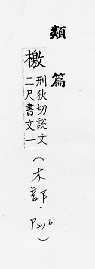 類篇
檄
刑狄切說文
二尺書文一
(木部·
P206)